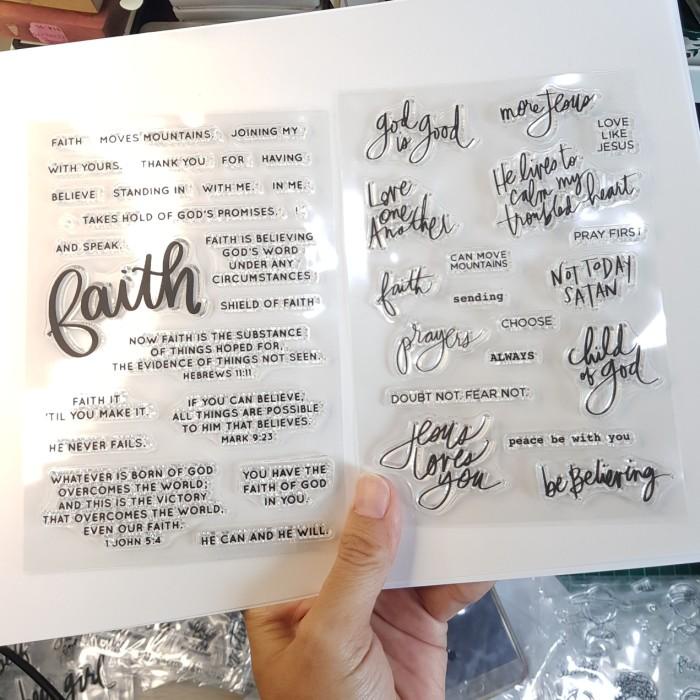 FAITH MOVES MOUNTAINS. JOINING MY
WITH YOURS. THANK YOU FOR HAVING
BELIEVE STANDING IN WITH ME. IN ME.
TAKES HOLD OF GOD'S PROMISES. !
AND SPEAK.
FAITH IS BELIEVING
GOD'S WORD
UNDER ANY
CIRCUMSTANCES
faith
SHIELD OF FAITH
NOW FAITH IS THE SUBSTANCE
OF THINGS HOPED FOR,
THE EVIDENCE OF THINGS NOT SEEN.
HEBREWS 11:11
FAITH IT
'TIL YOU MAKE IT.
IF YOU CAN BELIEVE,
ALL THINGS ARE POSSIBLE
TO HIM THAT BELIEVES.
MARK 9:23
HE NEVER FAILS.
WHATEVER IS BORN OF GOD
OVERCOMES THE WORLD;
AND THIS IS THE VICTORY
THAT OVERCOMES THE WORLD,
EVEN OUR FAITH.
1 JOHN 5:4
YOU HAVE THE
FAITH OF GOD
IN YOU.
HE CAN AND HE WILL.
god
is good
more Jesus
LOVE
LIKE
JESUS
Love
one
Another
He lives to
calm my
troubled heart
PRAY FIRST
faith
CAN MOVE
MOUNTAINS
sending
NOT TODAY
SATAN
prayers
CHOOSE
ALWAYS
child
of god
DOUBT NOT. FEAR NOT.
Jesus
loves
you
peace be with you
be Believing
girl